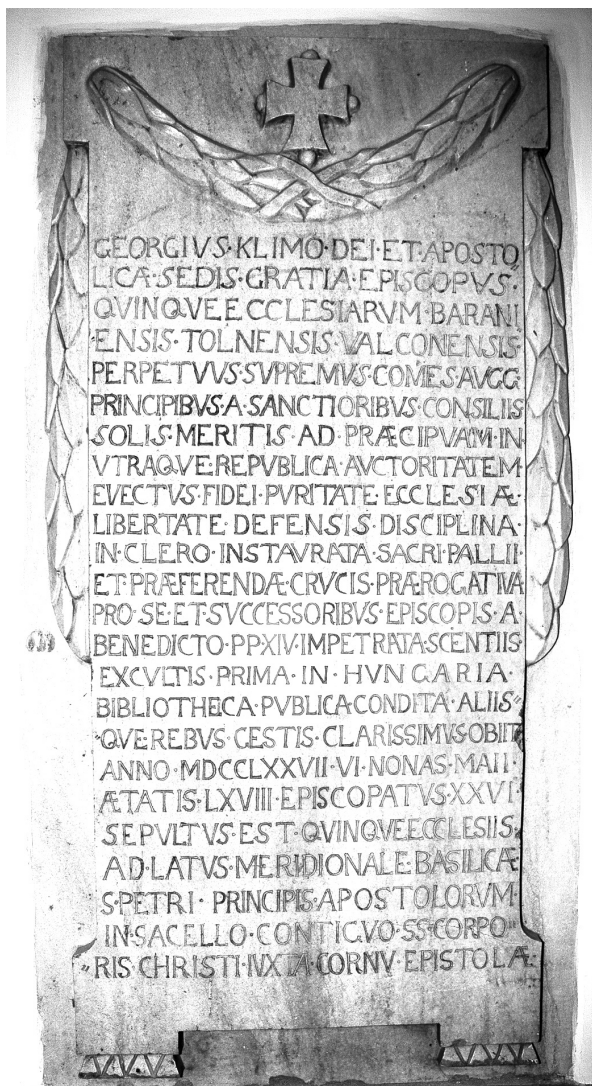 GEORGIVS·KLIMO·DEI·ET·APOSTO„
LICÆ·SEDIS·GRATIA·EPISCOPVS·
QVINQVEECCLESIARVM·BARANI
„ENSIS·TOLNENSIS·VALCONENSIS·
PERPETVVS·SVPREMVS·COMES·AVGG
PRINCIPIBVS·A·SANCTIORIBVS·CONSILIIS
SOLIS·MERITIS·AD·PRÆCIPVAM·IN
VTRAQVE·REPVBLICA·AVCTORITATEM
EVECTVS·FIDEI·PVRITATE·ECCLESIÆ·
LIBERTATE·DEFENSIS·DISCIPLINA·
IN·CLERO·INSTAVRATA·SACRI·PALLII·
ET·PRÆFERENDÆ·CRVCIS·PRÆROGATIVA
PRO·SE·ET·SVCCESSORIBVS·EPISCOPIS·A·
BENEDICTO·PP·XIV·IMPETRATA·SCENTIIS·
EXCVLTIS·PRIMA·IN·HVNGARIA·
BIBLIOTHECA·PVBLICA·CONDITA·ALIIS„
„QVE·REBVS·GESTIS·CLARISSIMVS·OBIIT
ANNO·MDCCLXXVII·VI·NONAS·MAII·
ÆTATIS·LXVIII·EPISCOPATVS·XXVI·
SEPVLTVS·EST·QVINQVEECCLESIIS·
AD·LATVS·MERIDIONALE·BASILICÆ
S·PETRI·PRINCIPIS·APOSTOLORVM·
IN·SACELLO·CONTIGVO·SS·CORPO„
„RIS·CHRISTI·IVXTA·CORNV·EPISTOLÆ·